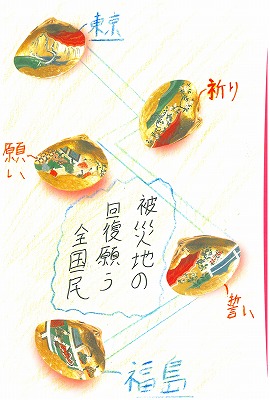 東京
祈り
願い
被災地の
回復願う
全国民
誓い
福島